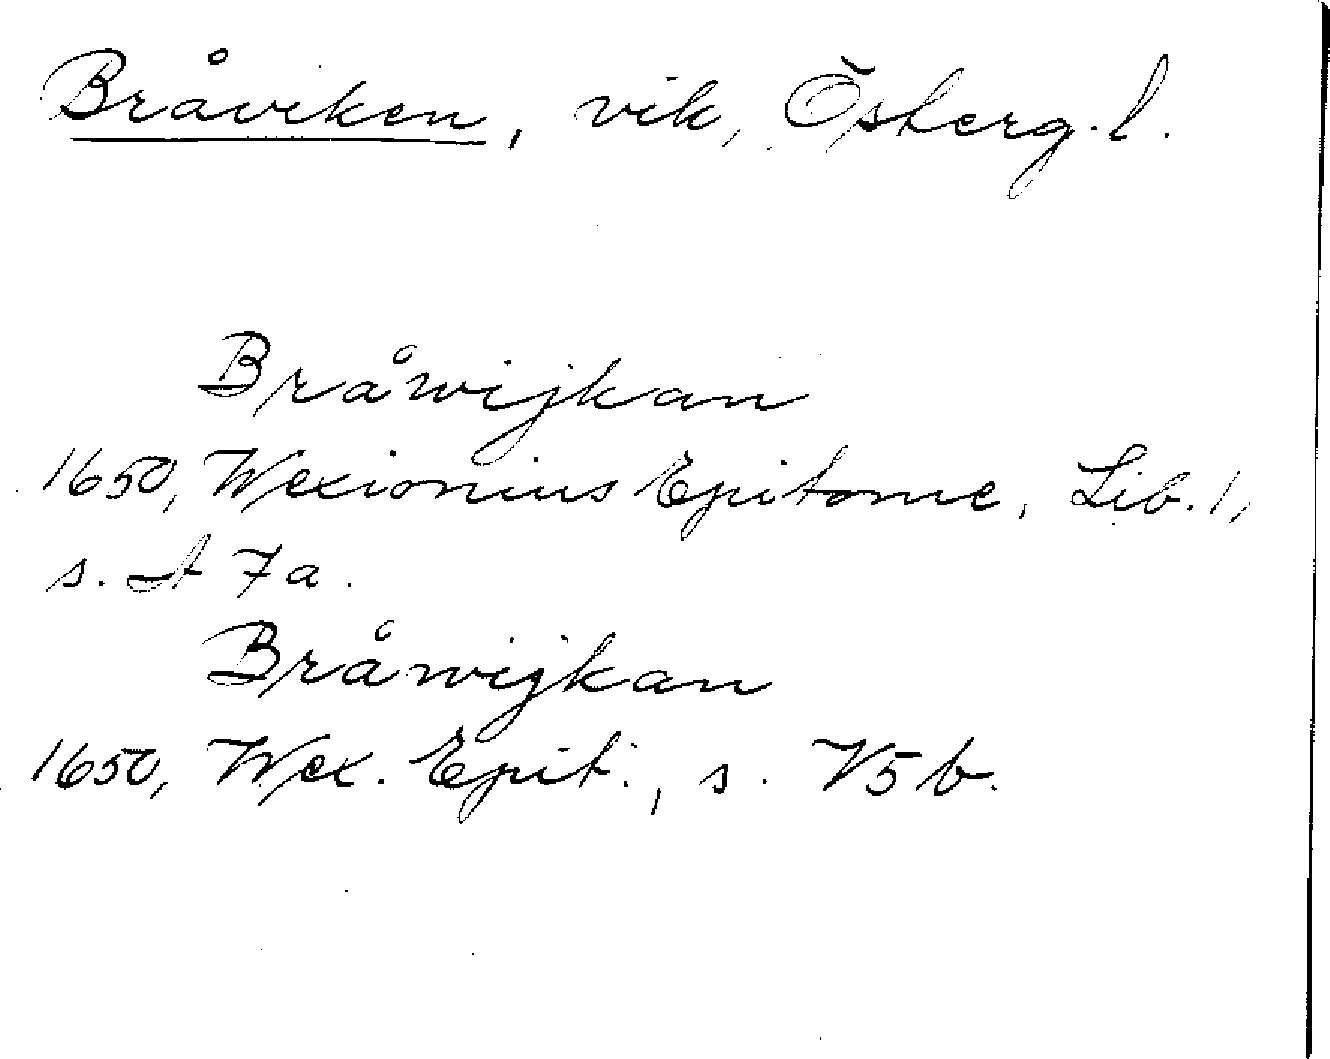 Bråviken, vik, Österg. l.
Bråwijkan
1650, Wexionius Epitome, Lib. 1,
s. A 7a.
Bråwijkan
1650, Wex. Epit., s. V5b.